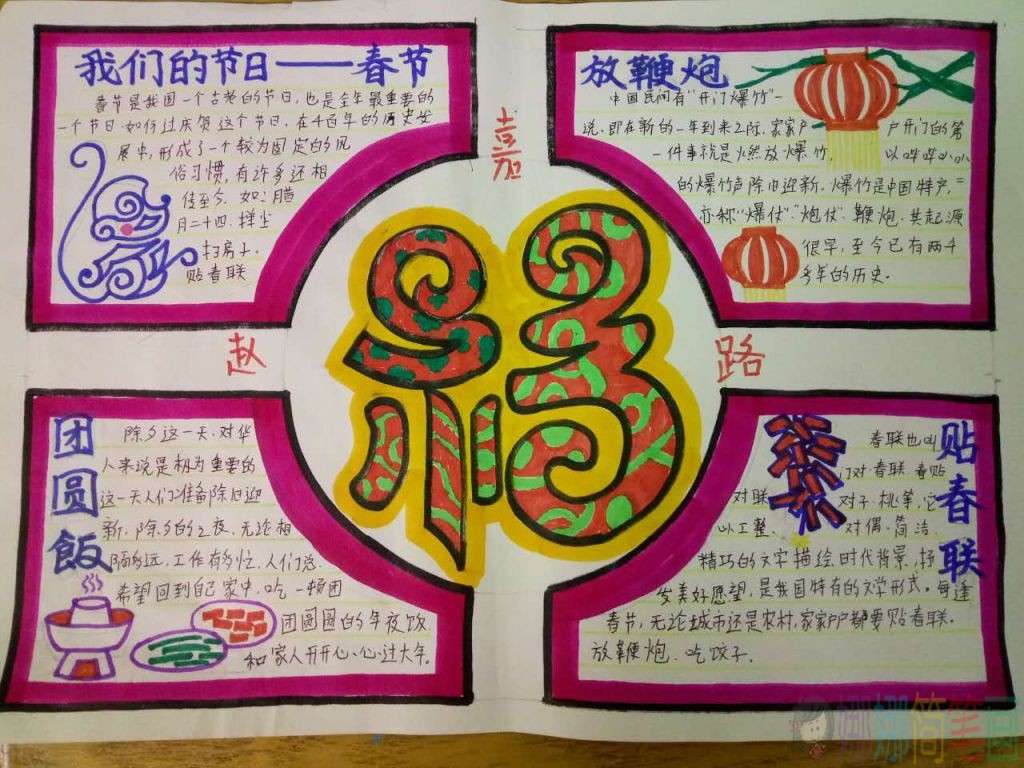 我们的节日——春节
春节是我国一个古老的节日,也是全年最重要的
一个节日.如何过庆贺这个节日.在4百年的历史发
展中,形成了一个较为固定的风
俗习惯,有许多还相
传至今.如:腊
月二十四.掸尘
扫房子.
贴春联
放鞭炮
中国民间有"开门爆竹"一
说.即在新的一年到来之际,家家户户开门的第
一件事就是燃放爆竹,以哔哔叭叭
的爆竹声除旧迎新.爆竹是中国特产,
亦称"爆仗"."炮仗".鞭炮.其起源
很早,至今已有两4
多年的历史.
嘉
赵
路
福
团圆飯
除夕这一天,对华
人来说是极为重要的
这一天人们准备除旧迎
新.除夕的之夜.无论相
隔多远.工作有多忙.人们总
希望回到自己家中.吃一顿团
团圆圆的年夜饭
和家人开开心心过大年.
贴春联
春联也叫
门对.春联.春贴
对联 对子.桃笔,它
以工整 对偶.简洁.
精巧的文字描绘时代背景,抒
发美好愿望,是我国特有的文学形式.每逢
春节,无论城市还是农村,家家户户都要贴春联.
放鞭炮.吃饺子.
娜娜简笔画